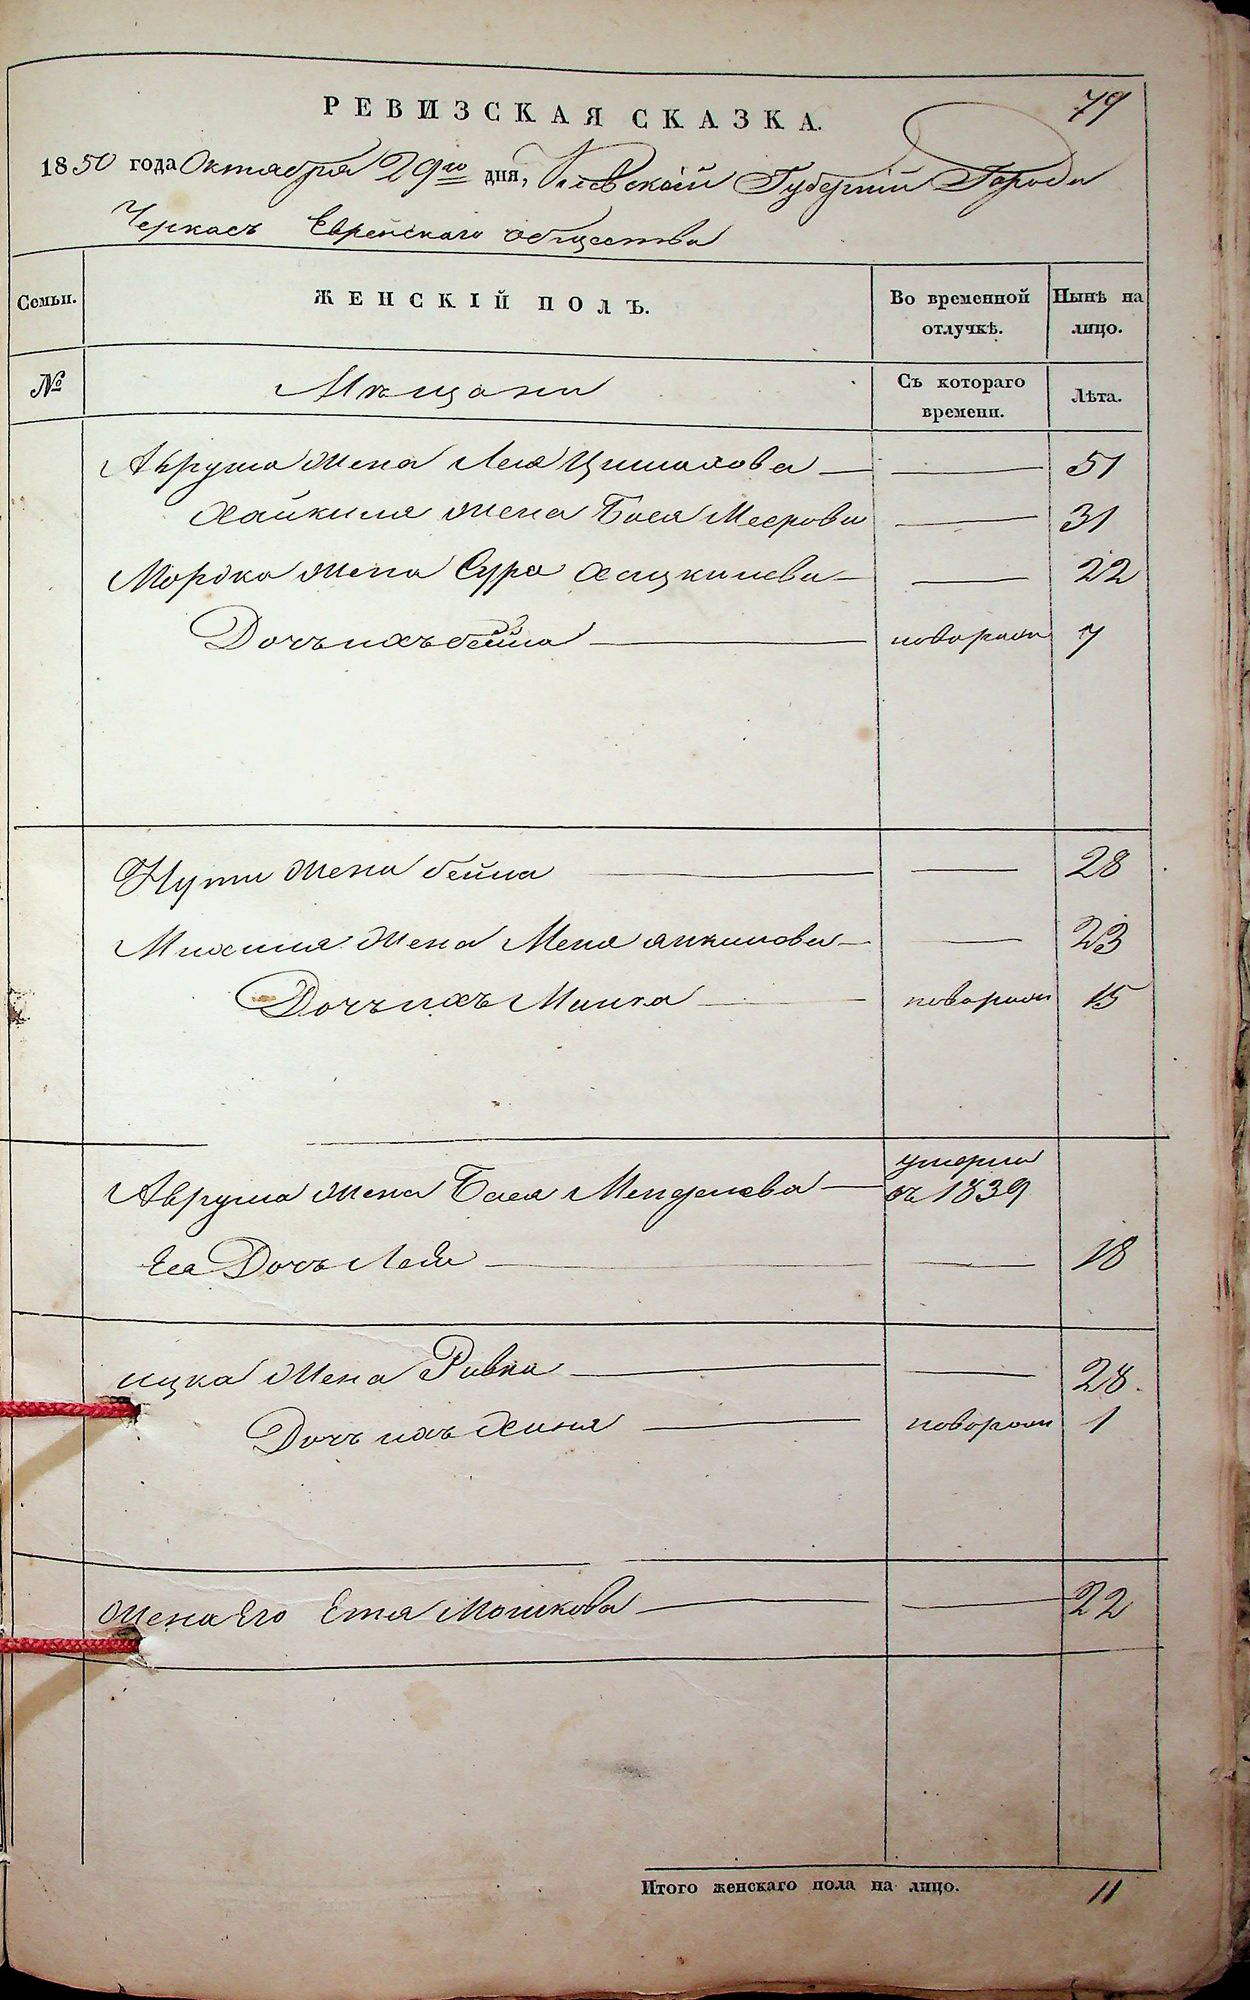 79
РЕВИЗСКАЯ СКАЗКА.
1850 года Октября 29го дня, Киевской Губернии Города
Черкасъ Еврейского общества
Семьи. ЖЕНСКІЙ ПОЛЪ. Во временной отлучкѣ. Нынѣ на лицо.
№ Мещани Съ котораго времени. Лѣта.
Аврума жена Лея — — 51
Хайкиля жена Бася Меерова — 31
Мордка жена Сура Хацкилева — — 22
Дочь ихъ бейла — новорож 7
Нути жена бейла — — 28
Михиля жена Меня янкилова — — 23
Дочь ихъ Минка — новорож 15
Аврума жена Бася Менделева — умерла въ 1839
Еа Дочь Лея — — 18
ицка жена Ривка — — 28.
Дочь ихъ Хиня — новорож 1
жена Его Етя Мошкова — — 22
Итого женскаго пола на лицо. 11